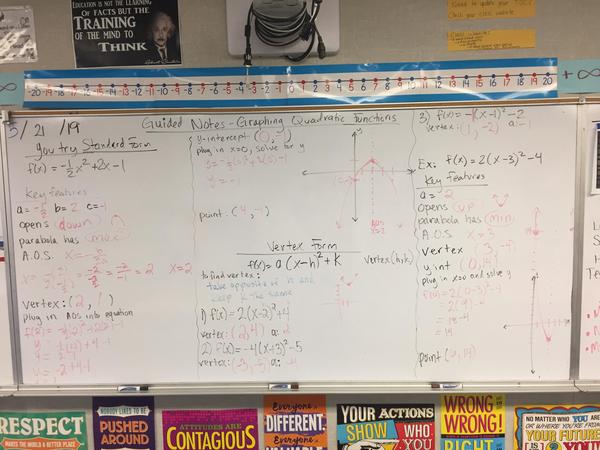 EDUCATION IS NOT THE LEARNING
OF FACTS BUT THE
TRAINING
OF THE MIND TO
THINK
-20 -19 -18 -17 -16 -15 -14 -13 -12 -11 -10 -9 -8 -7 -6 -5 -4 -3 -2 -1 0 1 2 3 4 5 6 7 8 9 10 11 12 13 14 15 16 17 18 19 20
∞
+∞
5/21/19
Guided Notes - Graphing Quadratic Functions
you try Standard Form
f(x)=-½x²+2x-1
Key features
a=-½ b=2 c=-1
opens (down)
parabola has (max)
A.O.S.
= 2 x=2
vertex: (2, 1)
plug in AOS into equation
y=-2+4-1
y-intercept (0, -1)
plug in x=0, solve for y
y=-1
point: (4, -1)
AOS
x=2
Vertex Form
f(x)=a(x-h)²+k
vertex(h,k)
to find vertex:
take opposite of h and
keep k the same
1) f(x)=2(x-2)²+4
vertex: (2,4) a: 2
2) f(x)=-4(x+3)²-5
vertex: (-3,-5) a: -4
3) f(x)=-1(x-1)²-2
vertex: (1, -2) a: -1
Ex: f(x)=2(x-3)²-4
Key features
a= 2
opens (up)
parabola has (min)
A.O.S. x=3
vertex (3, -4)
y int (0, 14)
plug in x=0 and solve y
f(0)=2(0-3)²-4
2(9)-4
18-4
14
point
RESPECT
MAKES THE WORLD A BETTER PLACE
NOBODY LIKES TO BE
PUSHED
AROUND
ATTITUDES ARE
CONTAGIOUS
Everyone is
DIFFERENT,
Everyone is
YOUR ACTIONS
SHOW WHO
YOU
WRONG IS
WRONG!
RIGHT
NO MATTER WHO YOU ARE
OR WHERE YOU'RE FROM
YOUR FUTURE